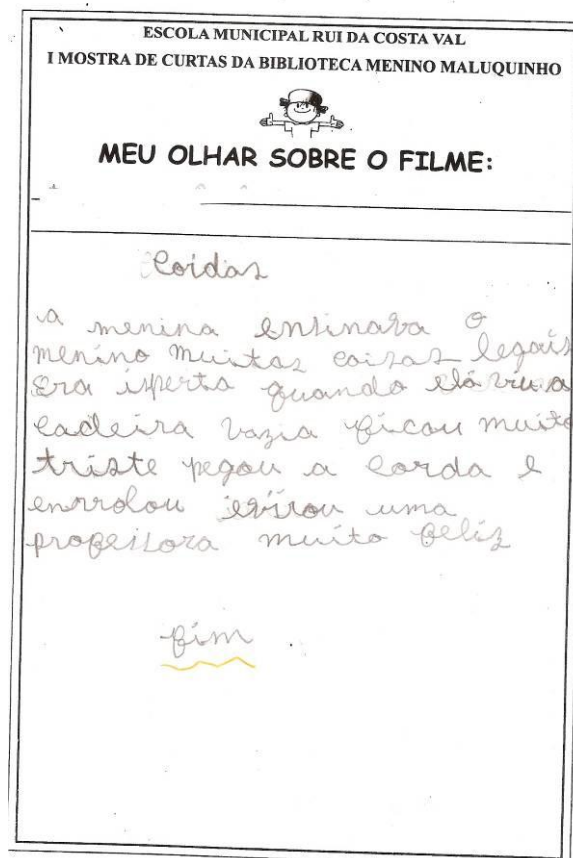 ESCOLA MUNICIPAL RUI DA COSTA VAL
I MOSTRA DE CURTAS DA BIBLIOTECA MENINO MALUQUINHO
MEU OLHAR SOBRE O FILME:
Coidas
a menina ensinava o
menino muitas coisas legais
Era isperta quando ela viu a
cadeira vazia ficou muito
triste pegou a corda e
enrrolou ivirou uma
profeisora muito feliz
fim